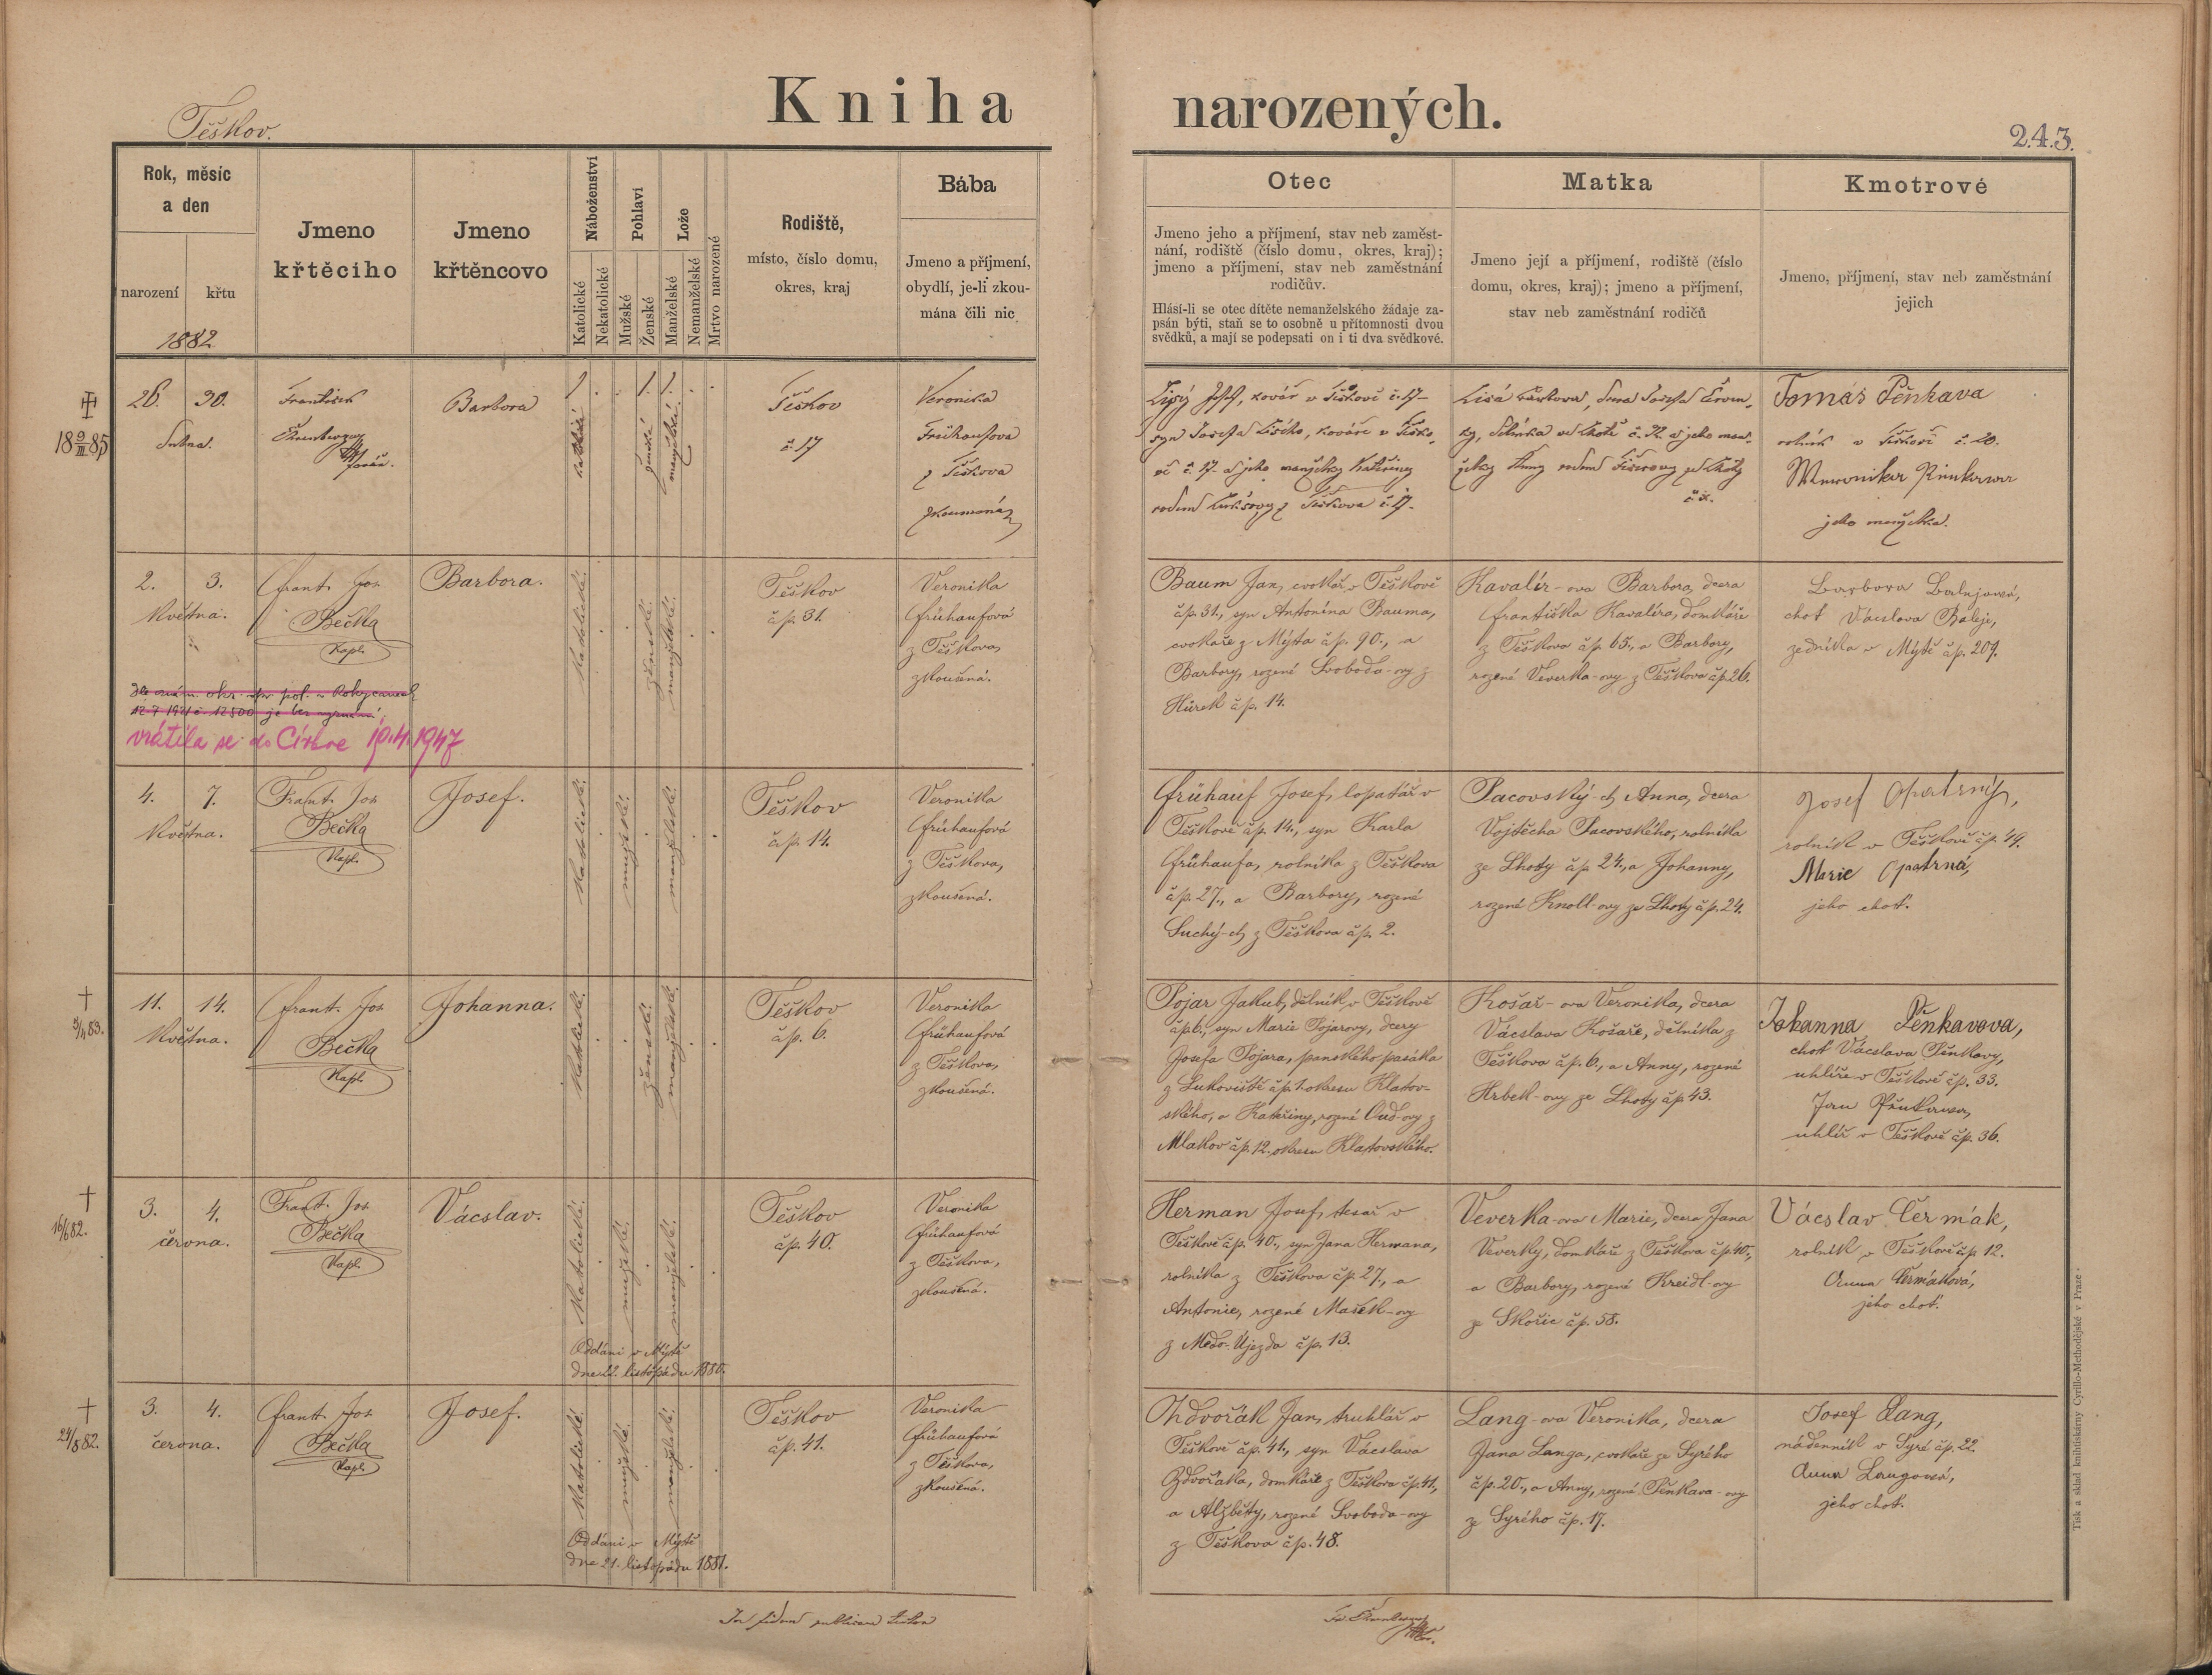 Těškov.
Kniha narozených.
243.
Rok, měsíc
a den
narození
křtu
1882
Jmeno
křtěcího
Jmeno
křtěncovo
Náboženství
Katolické
Nekatolické
Pohlaví
Mužské
Ženské
Lože
Manželské
Nemanželské
Mrtvo narozené
Rodiště,
místo, číslo domu,
okres, kraj
Bába
Jmeno a příjmení,
obydlí, je-li zkou-
mána čili nic
Otec
Jmeno jeho a příjmení, stav neb zaměst-
nání, rodiště (číslo domu, okres, kraj);
jmeno a příjmení, stav neb zaměstnání
rodičův.
Hlásí-li se otec dítěte nemanželského žádaje za-
psán býti, staň se to osobně u přítomnosti dvou
svědků, a mají se podepsati on i ti dva svědkové.
Matka
Jmeno její a příjmení, rodiště (číslo
domu, okres, kraj); jmeno a příjmení,
stav neb zaměstnání rodičů
Kmotrové
Jmeno, příjmení, stav neb zaměstnání
jejich
26. 30.
dubna.
František
Ehrenberger
farář.
Barbora
Těškov
č. 17
Veronika
Frühaufova
z Těškova
zkoumaná
kovář v Těškově č. 17
syn Josefa
kováře v Těško-
vě č. 17 a jeho manželky Kateřiny
z Těškova č. 17.
Tomáš Pěnkava
rolník v Těškově č. 20.
jeho manželka.
2. 3.
Května.
Frant. Jos.
Bečka
Kapl.
Barbora.
Katolické.
ženské.
manželské.
Těškov
čp. 31.
Veronika
Frühaufová
z Těškova,
zkoušená.
Baum Jan, cvokař v Těškově
čp. 31., syn Antonína Bauma,
cvokaře z Mýta čp. 90., a
Barbory, rozené Svoboda-ovy z
Hůrek čp. 14.
Kavalír-ova Barbora, dcera
Františka Kavalíra, domkáře
z Těškova čp. 65., a Barbory,
rozené Veverka-ovy z Těškova čp. 26.
Barbora Balejová,
choť Vácslava Baleje,
zedníka v Mýtě čp. 209.
vrátila se do Církve 19.4.1947
4. 7.
Května.
Frant. Jos.
Bečka
Kapl.
Josef.
Katolické.
mužské.
manželské.
Těškov
čp. 14.
Veronika
Frühaufová
z Těškova,
zkoušená.
Frühauf Josef, lopatář v
Těškově čp. 14., syn Karla
Frühaufa, rolníka z Těškova
čp. 27., a Barbory, rozené
Suchý-ch z Těškova čp. 2.
Pacovský-ch Anna, dcera
Vojtěcha Pacovského, rolníka
ze Lhoty čp. 24., a Johanny,
rozené Knoll-ovy ze Lhoty čp. 24.
Josef Opatrný,
rolník v Těškově čp. 49.
Marie Opatrná,
jeho choť.
11. 14.
Května.
Frant. Jos.
Bečka
Kapl.
Johanna.
Katolické.
ženské.
manželské.
Těškov
čp. 6.
Veronika
Frühaufová
z Těškova,
zkoušená.
Pojar Jakub, dělník v Těškově
čp. 6., syn Marie Pojarovy, dcery
Josefa Pojara, panského pasáka
z Lukoviště čp. 1. okresu Klatov-
ského, a Kateřiny, rozené Oud-ovy z
Mlakov čp. 12. okresu Klatovského.
Košař-ova Veronika, dcera
Vácslava Košaře, dělníka z
Těškova čp. 6., a Anny, rozené
Hrbek-ovy ze Lhoty čp. 43.
Johanna Pěnkavova,
choť Vácslava Pěnkavy,
uhlíře v Těškově čp. 33.
Jan Pěnkava,
uhlíř v Těškově čp. 36.
16/6 82.
3. 4.
června.
Frant. Jos.
Bečka
Kapl.
Vácslav.
Katolické.
mužské.
manželské.
Oddáni v Mýtě
dne 22. listopadu 1880.
Těškov
čp. 40.
Veronika
Frühaufová
z Těškova,
zkoušená.
Herman Josef, tesař v
Těškově čp. 40., syn Jana Hermana,
rolníka z Těškova čp. 27., a
Antonie, rozené Mašek-ovy
z Medo-Újezda čp. 13.
Veverka-ova Marie, dcera Jana
Veverky, domkáře z Těškova čp. 40.,
a Barbory, rozené Kreidl-ovy
ze Skořic čp. 58.
Vácslav Čermák,
rolník v Těškově čp. 12.
Anna Čermáková,
jeho choť.
24/8 82.
3. 4.
června.
Frant. Jos.
Bečka
Kapl.
Josef.
Katolické.
mužské.
manželské.
Oddáni v Mýtě
dne 21. listopadu 1881.
Těškov
čp. 41.
Veronika
Frühaufová
z Těškova,
zkoušená.
Jan, truhlář v
Těškově čp. 41., syn Vácslava
domkáře z Těškova čp. 41.,
a Alžběty, rozené Svoboda-ovy
z Těškova čp. 48.
Lang-ova Veronika, dcera
Jana Langa, cvokaře ze Syrého
čp. 20., a Anny, rozené Pěnkava-ovy
ze Syrého čp. 17.
Josef Lang,
nádenník v Syré čp. 22.
Anna Langová,
jeho choť.
Tisk a sklad knihtiskárny Cyrillo-Methodějské v Praze.